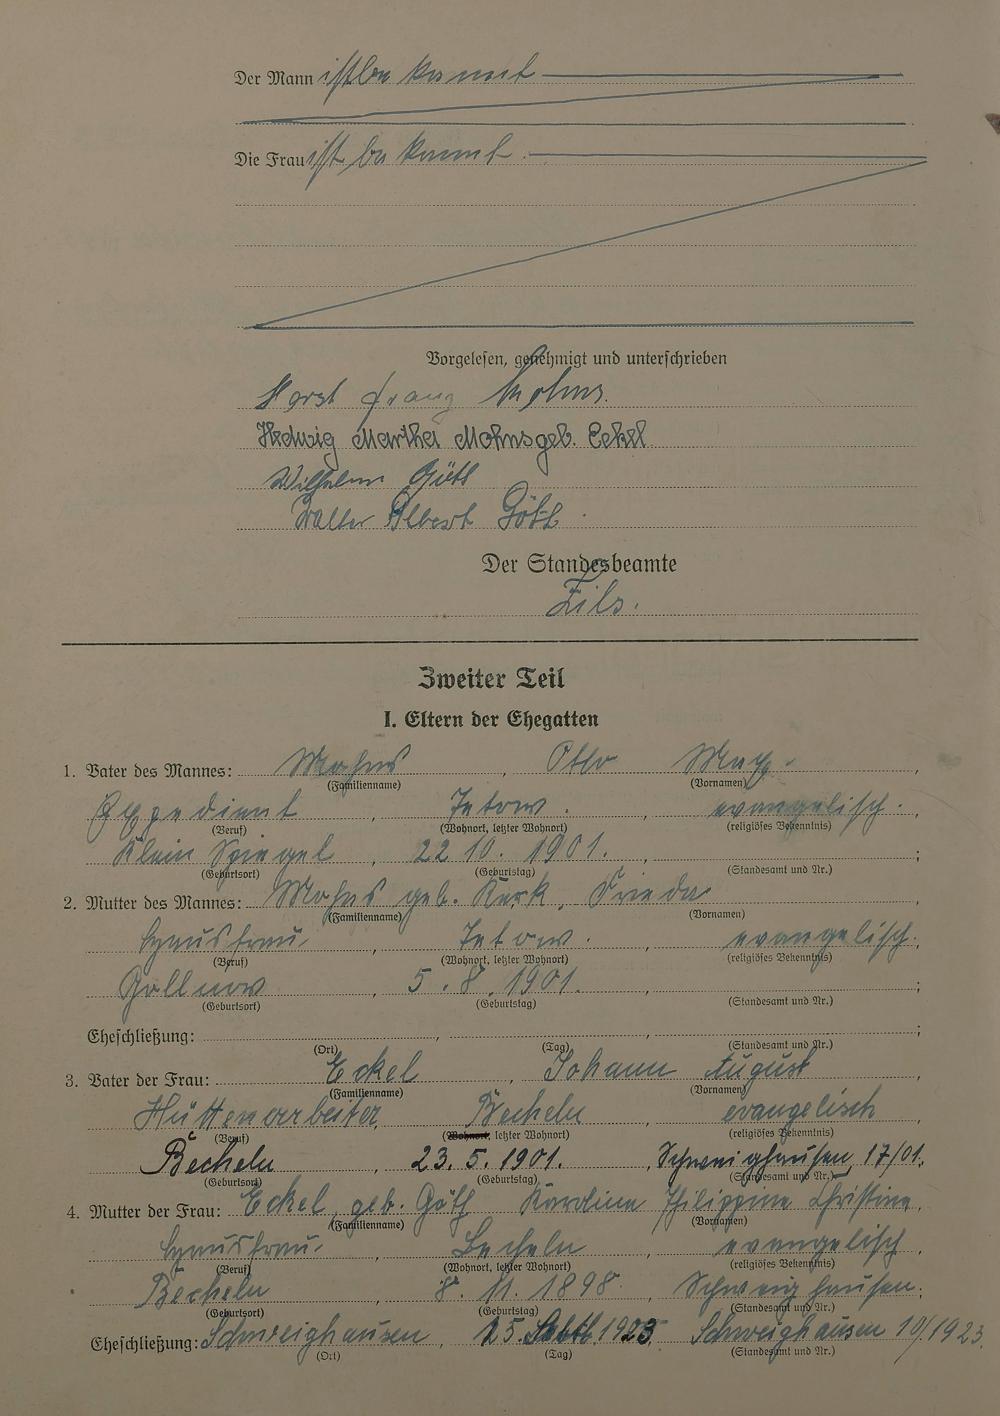 Der Mann ist bekannt
Die Frau ist bekannt.
Vorgelesen, genehmigt und unterschrieben
Horst Franz Mohns.
Hedwig Martha Mohns geb. Eckel
Wilhelm Göth
Walter Albert Göth.
Der Standesbeamte
Zils.
Zweiter Teil
I. Eltern der Ehegatten
1. Vater des Mannes: Mohns, Otto Max,
(Familienname) (Vornamen)
Expedient, Tetow., evangelisch.
(Beruf) (Wohnort, letzter Wohnort) (religiöses Bekenntnis)
Klein Spiegel, 22 10. 1901. ;
(Geburtsort) (Geburtstag) (Standesamt und Nr.)
2. Mutter des Mannes: Mohns geb. Kerk, Frieda,
(Familienname) (Vornamen)
Hausfrau, Tetow., evangelisch.
(Beruf) (Wohnort, letzter Wohnort) (religiöses Bekenntnis)
Gollnow, 5. 8. 1901. ;
(Geburtsort) (Geburtstag) (Standesamt und Nr.)
Eheschließung: , , ;
(Ort) (Tag) (Standesamt und Nr.)
3. Vater der Frau: Eckel, Johann August,
(Familienname) (Vornamen)
Hüttenarbeiter, Becheln, evangelisch
(Beruf) (Wohnort, letzter Wohnort) (religiöses Bekenntnis)
Becheln, 23. 5. 1901., Schweighausen 17/01;
(Geburtsort) (Geburtstag) (Standesamt und Nr.)
4. Mutter der Frau: Eckel, geb. Göth Karoline Philippine Christine,
(Familienname) (Vornamen)
Hausfrau, Becheln, evangelisch,
(Beruf) (Wohnort, letzter Wohnort) (religiöses Bekenntnis)
Becheln, 8. 11. 1898, Schweighausen;
(Geburtsort) (Geburtstag) (Standesamt und Nr.)
Eheschließung: Schweighausen, 25. 1923. Schweighausen 10/1923.
(Ort) (Tag) (Standesamt und Nr.)